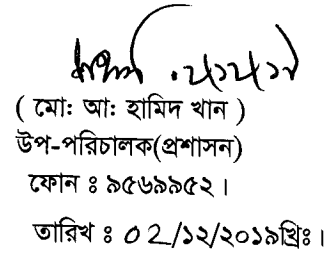 ( মো: আ: হামিদ খান )
উপ-পরিচালক(প্রশাসন)
ফোন ঃ ৯৫৬৯৯৫২ ।
তারিখ ঃ ০২/১২/২০১৯খ্রিঃ ।